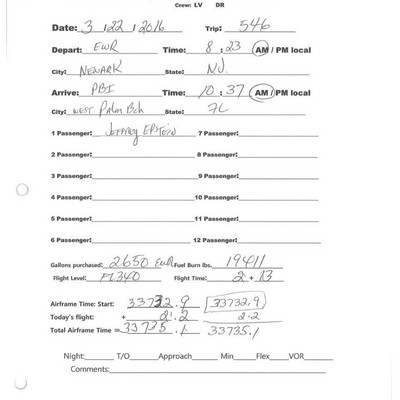 Crew: LV DR
Date: 3 / 22 / 2016 Trip: 546
Depart: EWR Time: 8 : 23 AM / PM local
City: NEWARK State: NJ
Arrive: PBI Time: 10 : 37 AM / PM local
City: West Palm Bch State: FL
1 Passenger: Jeffrey Epstein 7 Passenger:
2 Passenger: 8 Passenger:
3 Passenger: 9 Passenger:
4 Passenger: 10 Passenger:
5 Passenger: 11 Passenger:
6 Passenger: 12 Passenger:
Gallons purchased: 2650 EWR Fuel Burn lbs. 19411
Flight Level: FL340 Flight Time: 2 + 13
Airframe Time: Start: 33732.9 33732.9
Today's flight: + 2.2 2.2
Total Airframe Time = 33735.1 33735.1
Night: T/O Approach Min Flex VOR
Comments: